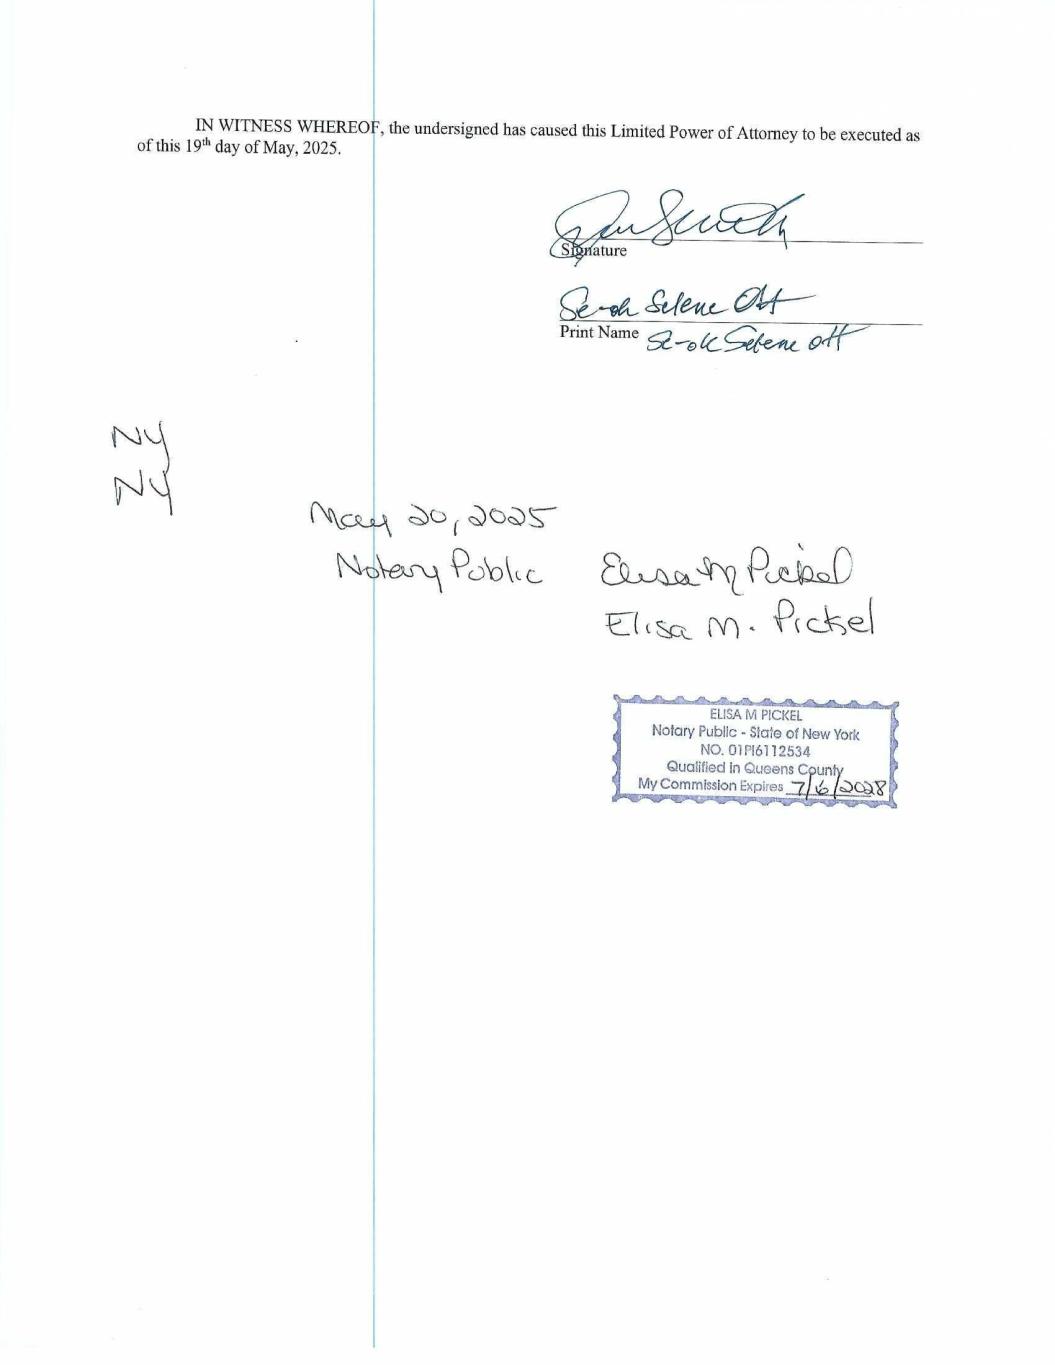 IN WITNESS WHEREOF, the undersigned has caused this Limited Power of Attorney to be executed as
of this 19th day of May, 2025.
Signature
Selene Ott
Print Name Selene Ott
NY
NY
May 20, 2025
Notary Public Elisa M Pickel
Elisa M. Pickel
ELISA M PICKEL
Notary Public - State of New York
NO. 01PI6112534
Qualified in Queens County
My Commission Expires 7/6/2028